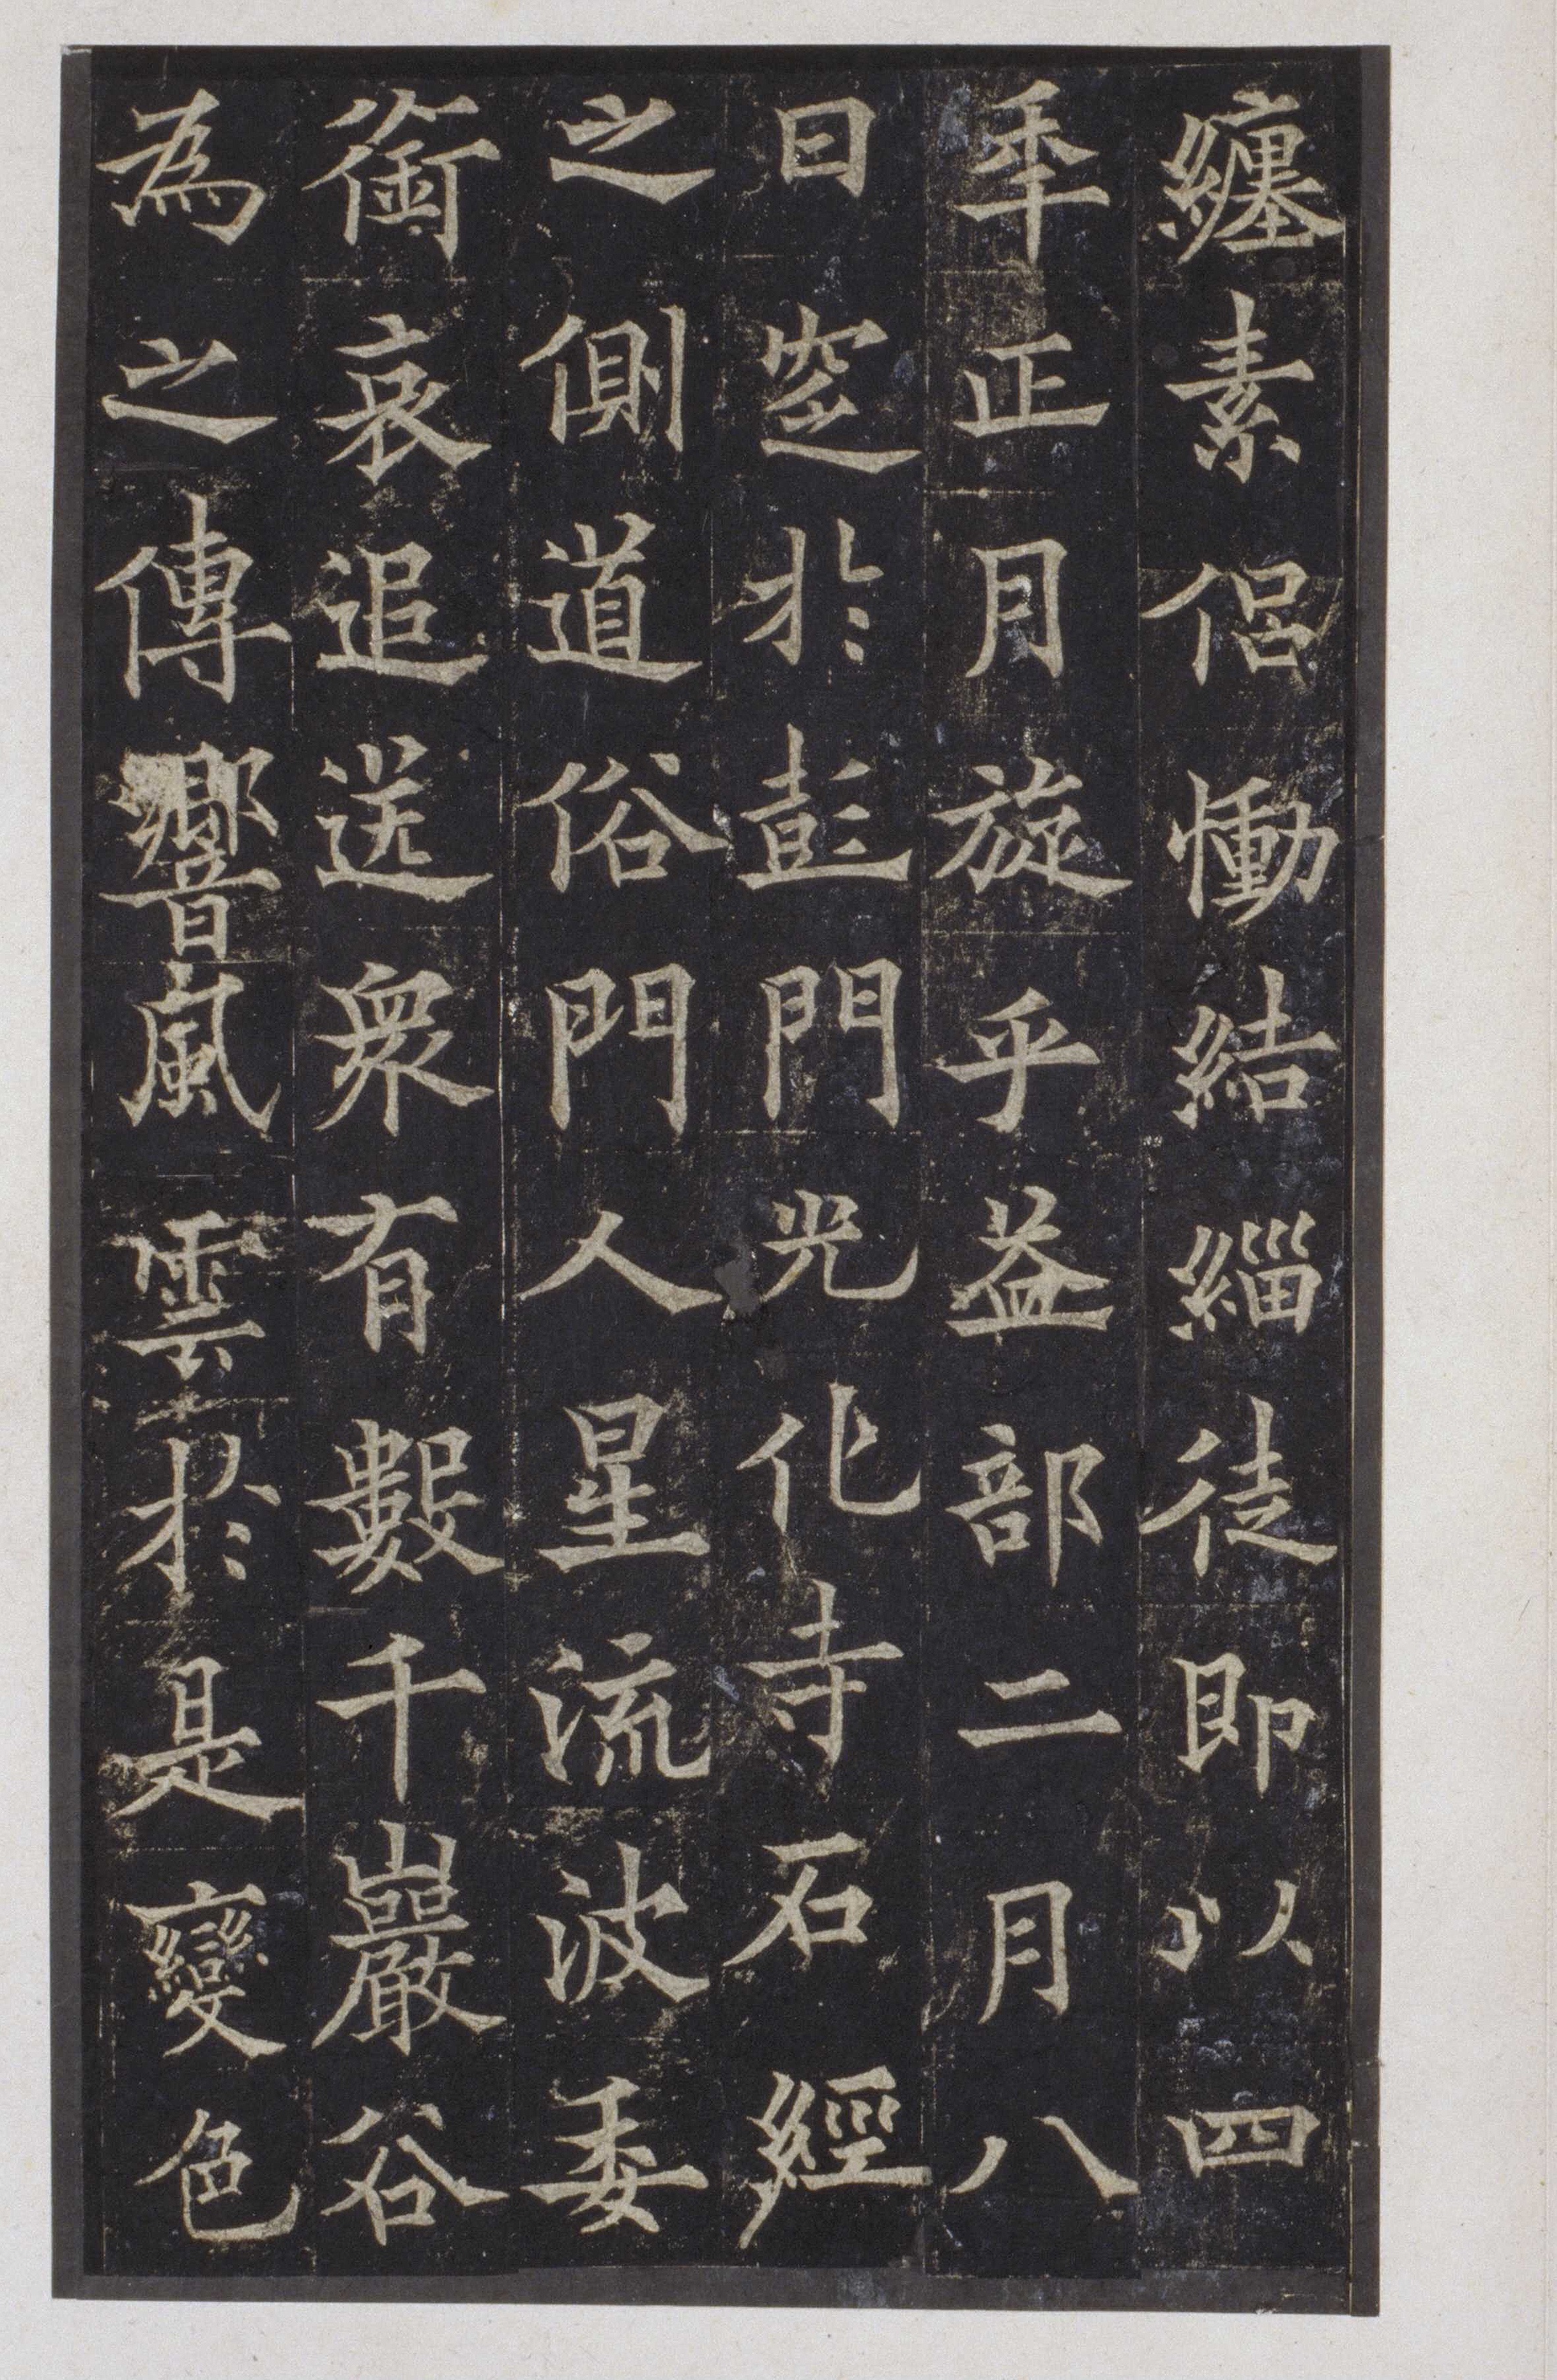 纏素侶慟結緇徒即以四
年正月旋乎益部二月八
日窆於彭門光化寺石經
之側道俗門人星流波委
銜哀追送衆有數千巖谷
為之傳響風雲於是變色